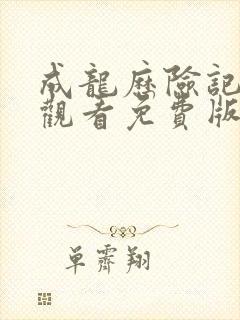 成龍歷險記
觀看免費版
單霽翔